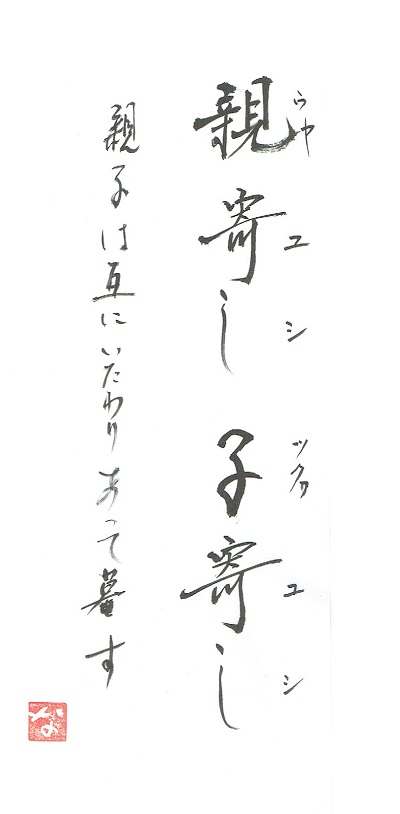 親寄し 子寄し
ウヤ ユシ ックヮ ユシ
親子は互にいたわりあって暮す
な